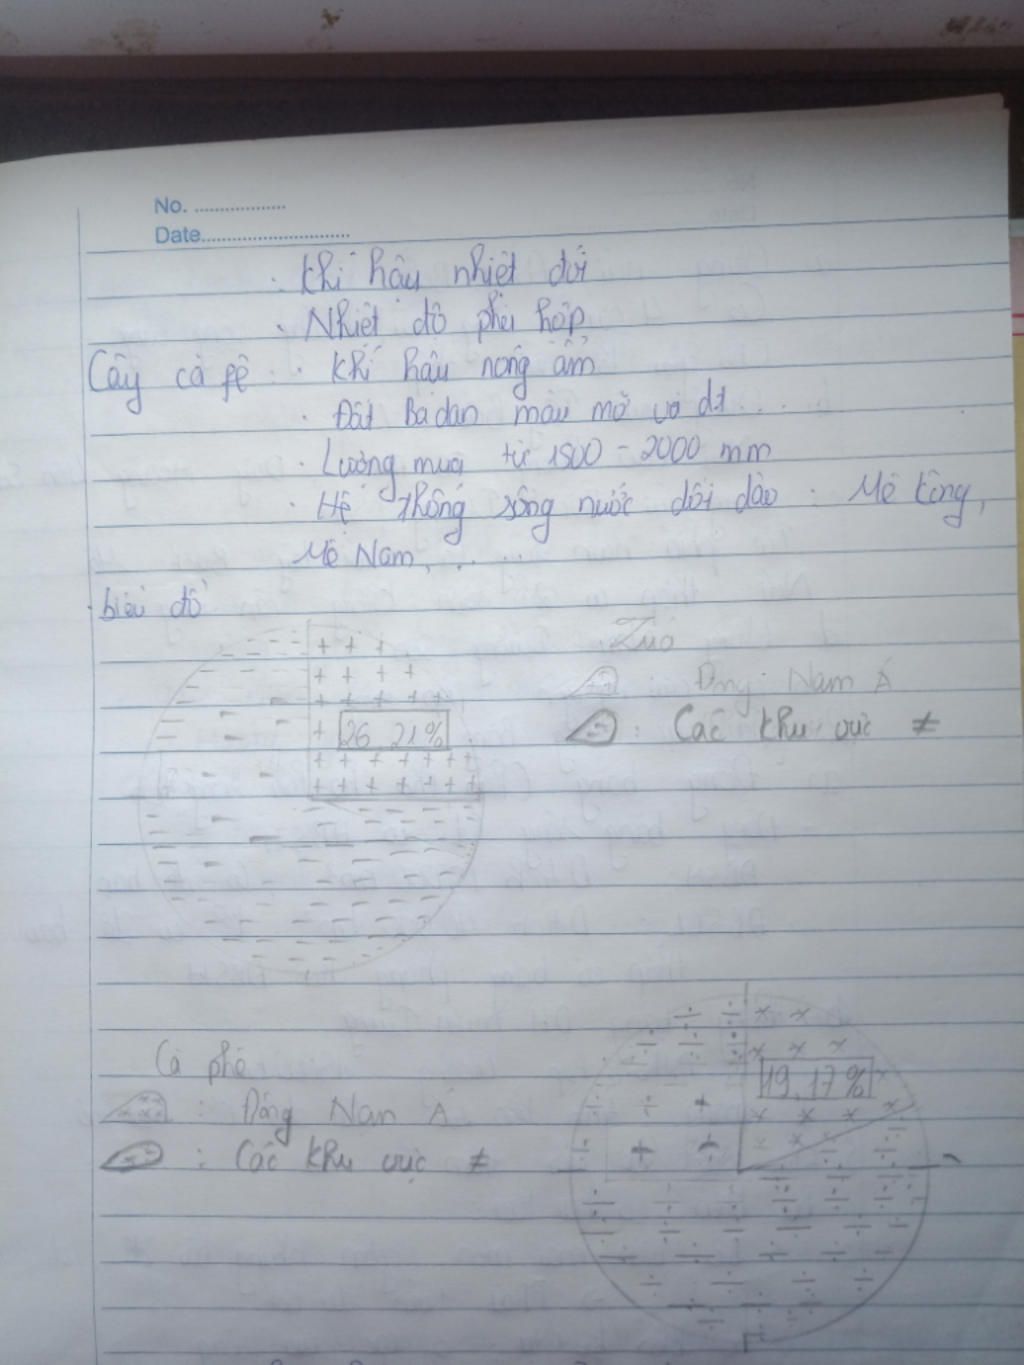 No. ..................
Date............................
. Khí hậu nhiệt đới
. Nhiệt độ phù hợp
Cây cà fê . . Khí hậu nóng ẩm
. Đất Badan màu mỡ và d1 ...
. Lượng mưa từ 1800 - 2000 mm
. Hệ thống sông nước dồi dào : Mê Kông,
Mê Nam, ...
. biểu đồ
: Đông Nam Á
26,21%
: Các khu vực ≠
Cà phê
19,17%
: Đông Nam Á
: Các khu vực ≠